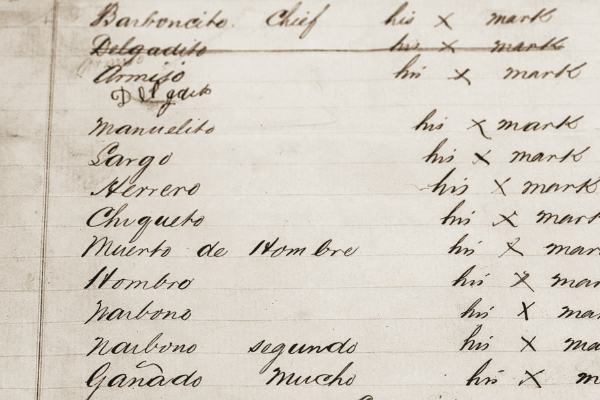 Barboncito. Chief his X mark
Delgadito his X mark
Armijo his X mark
Delgado
Manuelito his X mark
Largo his X mark
Herrero his X mark
Chiqueto his X mark
Muerto de Hombre his X mar
Hombro his X mar
Narbono his X mar
Narbono segundo his X ma
Gañado Mucho his X m